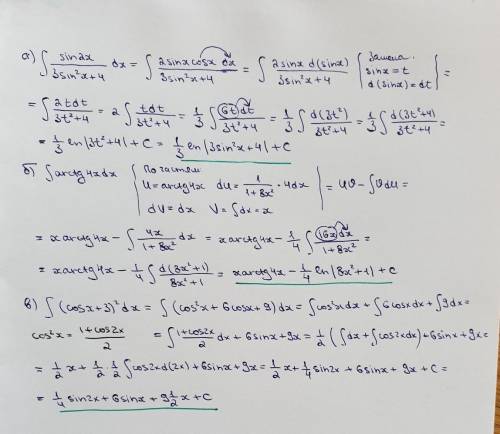 а) ∫ sin2x / (3sin²x+4) dx = ∫ 2sinx cosx dx / (3sin²x+4) = ∫ 2sinx d(sinx) / (3sin²x+4) | Замена. sinx = t d(sinx) = dt | =
= ∫ 2tdt / (3t²+4) = 2 ∫ tdt / (3t²+4) = 1/3 ∫ (6t)dt / (3t²+4) = 1/3 ∫ d(3t²) / (3t²+4) = 1/3 ∫ d(3t²+4) / (3t²+4) =
= 1/3 ln|3t²+4| + C = 1/3 ln|3sin²x+4| + C
б) ∫ arctg4xdx | По частям U = arctg4x du = 1/(1+8x²) · 4dx dV = dx V = ∫dx = x | = UV - ∫Vdu =
= xarctg4x - ∫ 4x / (1+8x²) dx = xarctg4x - 1/4 ∫ (16x)dx / (1+8x²) =
= xarctg4x - 1/4 ∫ d(8x²+1) / (8x²+1) = xarctg4x - 1/4 ln|8x²+1| + C
в) ∫ (cosx+3)²dx = ∫ (cos²x + 6cosx + 9)dx = ∫cos²xdx + ∫6cosxdx + ∫9dx =
cos²x = (1+cos2x)/2 = ∫ (1+cos2x)/2 dx + 6sinx + 9x = 1/2 (∫dx + ∫cos2xdx) + 6sinx + 9x =
= 1/2 x + 1/2 · 1/2 ∫cos2xd(2x) + 6sinx + 9x = 1/2 x + 1/4 sin2x + 6sinx + 9x + C =
= 1/4 sin2x + 6sinx + 9 1/2 x + C